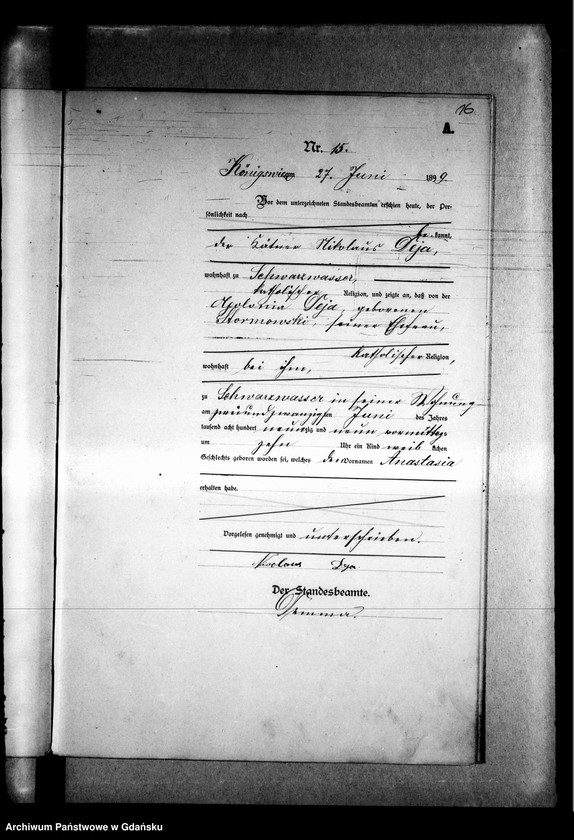 16
A.
Nr. 15.
Königswiese 27. Juni 1899.
Vor dem unterzeichneten Standesbeamten erschien heute, der Per-
sönlichkeit nach
be kannt,
der Kätner Nikolaus Deja,
wohnhaft zu Schwarzwasser,
katholischer Religion, und zeigte an, daß von der
Apolonia Deja, geborenen
seiner Ehefrau,
katholischer Religion,
wohnhaft bei ihm,
zu Schwarzwasser in seiner Wohnung
am Juni des Jahres
tausend acht hundert neunzig und neun vormittags
um zehn Uhr ein Kind weib lichen
Geschlechts geboren worden sei, welches den Vornamen Anastasia
erhalten habe.
Vorgelesen genehmigt und unterschrieben.
Nicolaus Deja
Der Standesbeamte.
Archiwum Państwowe w Gdańsku